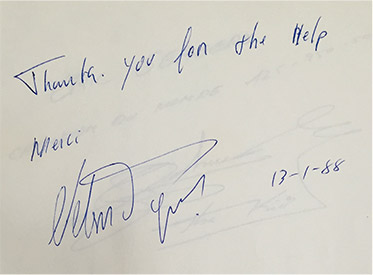 Thanks. you for the Help
Merci
13-1-88